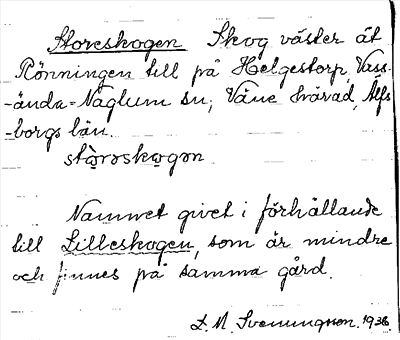 Storeskogen Skog väster åt
Rönningen till på Helgestorp, Väss-
-ända-Naglum sn, Väne härad, Älfs
-borgs län.
stòrəskogən
Namnet givet i förhållande
till Lilleskogen, som är mindre
och finnes på samma gård.
L. M. Svenungsson. 1936.